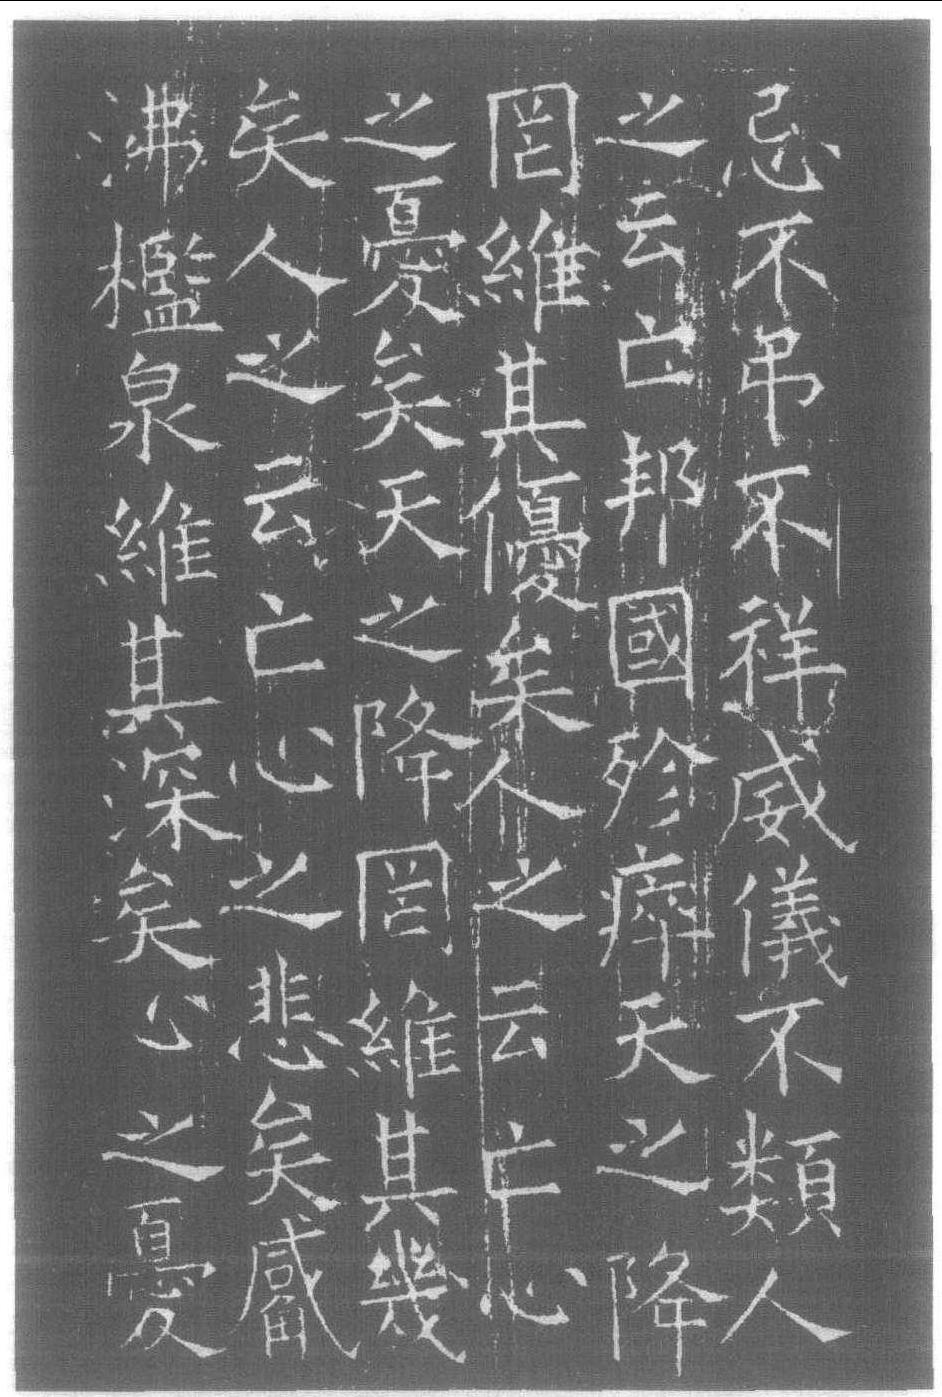 忌不吊不祥威儀不類人
之云亡邦國殄瘁天之降
罔維其優矣人之云亡心
之憂矣天之降罔維其幾
矣人之云亡心之悲矣觱
沸檻泉維其深矣心之憂